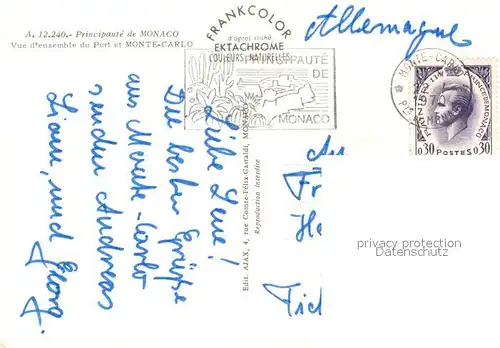 A. 12.240. - Principauté de MONACO
Vue d'ensemble du Port et MONTE-CARLO
FRANKCOLOR
d'après cliché
EKTACHROME
COULEURS NATURELLES
PRINCIPAUTÉ
DE
MONACO
Allemagne
MONTE-CARLO
0,30 POSTES 0,30
Liebe Lene!
Die besten Grüße
aus Monte-Carlo
senden Andreas
und Georg.
Edit. AJAX, 4, rue Comte-Félix-Gastaldi, MONACO
Reproduction interdite
An
Fr
He
privacy protection
Datenschutz